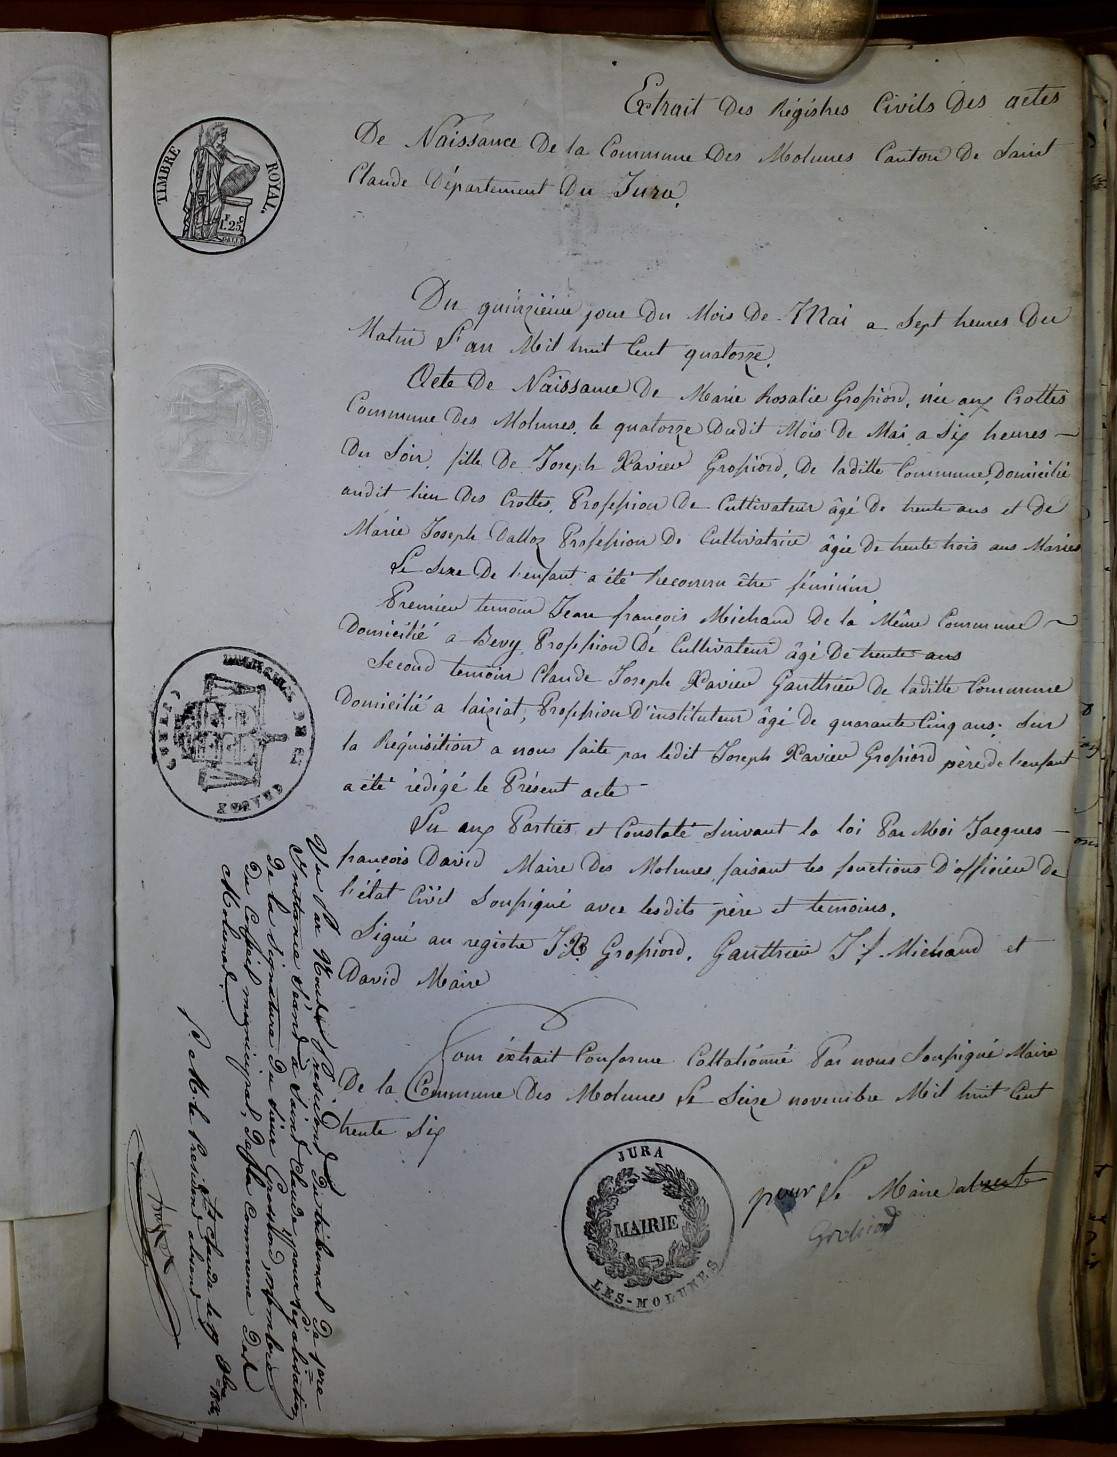 Extrait Des Régistres Civils Des actes
De Naissance De la Commune Des Molunes Canton De Saint
Claude Département Du Jura.
TIMBRE ROYAL.
1.25
Du quinzième jour Du Mois De Mai a Sept heures Du
Matin L'an Mil huit Cent quatorze.
Acte De Naissance De Marie Rosalie Grossiord, née aux Crottes
Commune Des Molunes, le quatorze Dudit Mois De Mai a Six heures
Du Soir, fille De Joseph Xavier Grossiord, De laditte Commune, Domicilié
audit lieu Des Crottes, Profession De Cultivateur âgé De trente ans et De
Marie Joseph Dalloz Profession De Cultivatrice âgée De trente trois ans Mariés
Le Sexe De l'enfant a été Reconnu être féminin
Premier temoin Jean françois Michaud De la Même Commune
Domicilié a Bevy Profession De Cultivateur âgé De trente ans
Second temoin Claude Joseph Xavier Gauthier De laditte Commune
Domicilié a laiziat, Profession D'instituteur âgé De quarante Cinq ans. Sur
la Réquisition a nous faite par ledit Joseph Xavier Grossiord père De l'enfant
a été rédigé le Présent acte
Lu aux Parties et Constaté Suivant la loi Par Moi Jacques
françois David Maire Des Molunes, faisant les fonctions D'officier De
l'état Civil Soussigné avec lesdits père et temoins.
Signé au registre J.X Grossiord, Gauthier J.f. Michaud et
David Maire
Pour éxtrait Conforme Collationné Par nous Soussigné Maire
De la Commune Des Molunes Le Seize novembre Mil huit Cent
trente Six
pour Le Maire absent
Grossiord
JURA
MAIRIE
LES-MOLUNES
Vu Par Nous Président Du tribunal De 1ere
Instance Séant à Saint Claude, pour légalisation
De la Signature Du Sieur Grossiord, Membre
Du Conseil municipal, De la Commune Des
Molunes.
St Claude le 19 9bre
P. M. le Président absent